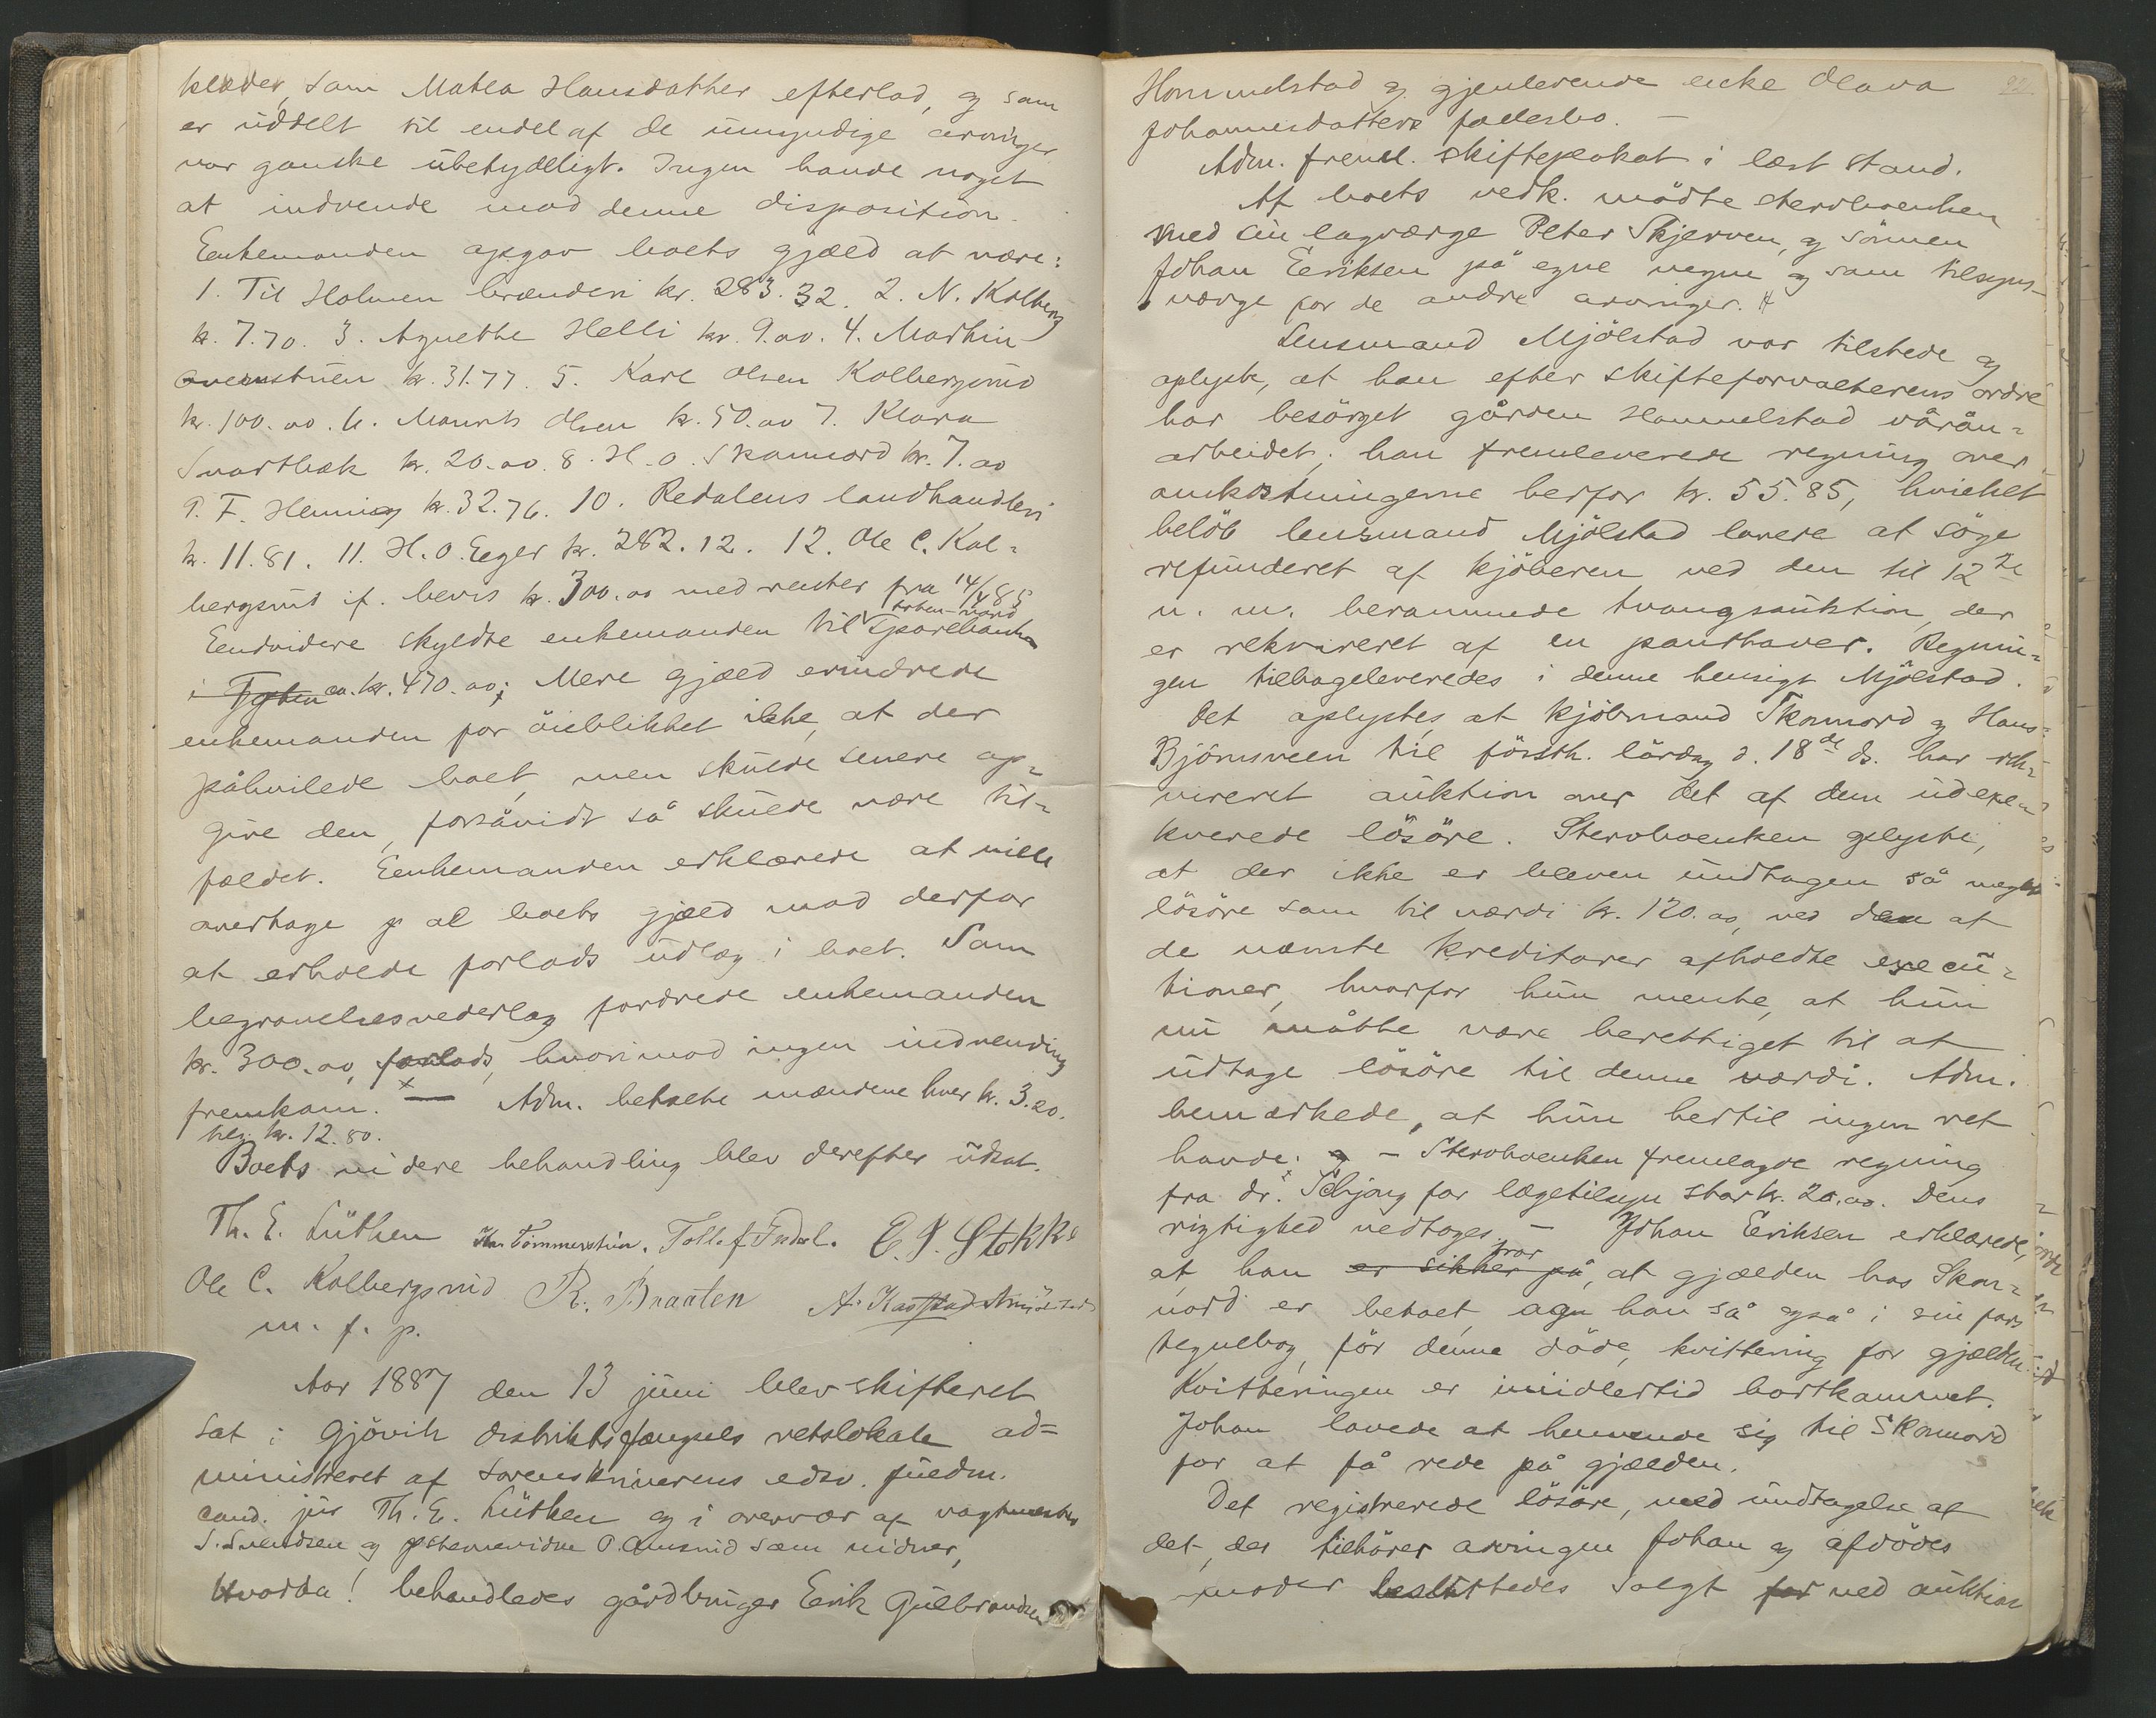 klæder, som Mathea Hansdatter efterlod, og som
er uddelt til endel af de umyndige arvinger
var ganske ubetydeligt. Ingen havde noget
at indvende mod denne disposition.
Enkemanden opgav boets gjæld at være:
1. Til Holmen brænderi kr. 283.32. 2. N. Kolberg
kr. 7.70. 3. Agnethe Helli kr. 9.00. 4. Marthin
kr. 31.77. 5. Karl Olsen Kolbergsvid
kr. 100.00. 6. Maurits Olsen kr. 50.00 7. Klara
Svartbæk kr. 20.00. 8. H. O. Skonnord kr. 7.00
9. F. Henning kr. 32.76. 10. Redalens landhandleri
kr. 11.81. 11. H. O. Eeger kr. 282.12. 12. Ole C. Kol-
bergsvid if. bevis kr. 300.00 med renter fra 14/4 85
Eendvidere skyldte enkemanden til Sparebanken
i Gjøvik ca. kr. 470.00; Mere gjæld erindrede
enkemanden for øieblikket ikke, at der
påhvilede boet, men skulde senere op-
give den, forsåvidt så skulde være til-
fældet. Eenkemanden erklærede at ville
overtage al boets gjæld mod derfor
at erholde forlods udlæg i boet. Som
begravelsesvederlag fordrede enkemanden
kr. 300.00, forlods, hvorimod ingen indvending
fremkom. x — Adm. betalte mændene hver kr. 3.20.
tils. kr. 12.80.
Boets videre behandling blev derefter udsat.
Th. E. Lütken Tømmerstuen. Tollef Enderl. E. P. Stokke
Ole C. Kolbergsvid R. Braaten A. Kastad Mjølstad
m. f. p.
Aar 1887 den 13 juni blev skifteret
sat i Gjøvik distriktsfængsels retslokale ad-
ministreret af sorenskriverens edsv. fuldm.
cand. jur Th. E. Lütken og i overvær af vagtmester
S. Svendsen og stevnevidne P. Amsrud som vidner,
Hvorda! behandledes gårdbruger Eerik Gulbrandsen
Hommelstad og gjenlevende enke Olava
Johannesdatters fællesbo. —
Adm. freml. skifteplakat i læst stand.
Af boets vedk. mødte stervboenken
med sin lagværge Peter Skjerven, og sønnen
Johan Eeriksen på egne vegne og som tilsyns-
værge for de andre arvinger. #
Lensmand Mjølstad var tilstede og
oplyste, at han efter skifteforvalterens ordre
har besørget gården Hommelstad våron-
arbeidet; han fremleverede regning over
omkostningerne herfor kr. 55.85, hvilket
beløb lensmand Mjølstad lovede at søge
refunderet af kjøberen ved den til 12te
n. m. berammede tvangsauktion, der
er rekvireret af en panthaver. Regnin-
gen tilbageleveredes i denne hensigt Mjølstad.
Det oplystes, at kjøbmand Skonnord og Hans
Bjørnsveen til førsth. lørdag d. 18de ds. har rek-
vireret auktion over det af dem udexe-
kverede løsøre. Stervboenken oplyste,
at der ikke er bleven undtagen så meget
løsøre som til værdi kr. 120.00, ved den af
de nævnte kreditorer afholdte execu-
tioner, hvorfor hun mente, at hun
nu måtte være berettiget til at
udtage løsøre til denne værdi. Adm.
bemærkede, at hun hertil ingen ret
havde. — Stervboenken fremlagde regning
fra dr. Schjøng for lægetilsyn stor kr. 20.00. Dens
rigtighed vedtoges. — Johan Eeriksen erklærede,
at han er sikker på tror, at gjælden hos Skon-
nord er betalt, han så også i sin fars
tegnebog, før denne døde, kvittering for gjælden.
Kvitteringen er imidlertid bortkommet.
Johan lovede at henvende sig til Skonnord
for at få rede på gjælden.
Det registrerede løsøre, med undtagelse af
det, der tilhører arvingen Johan og afdødes
moder besluttedes solgt for ved auktion